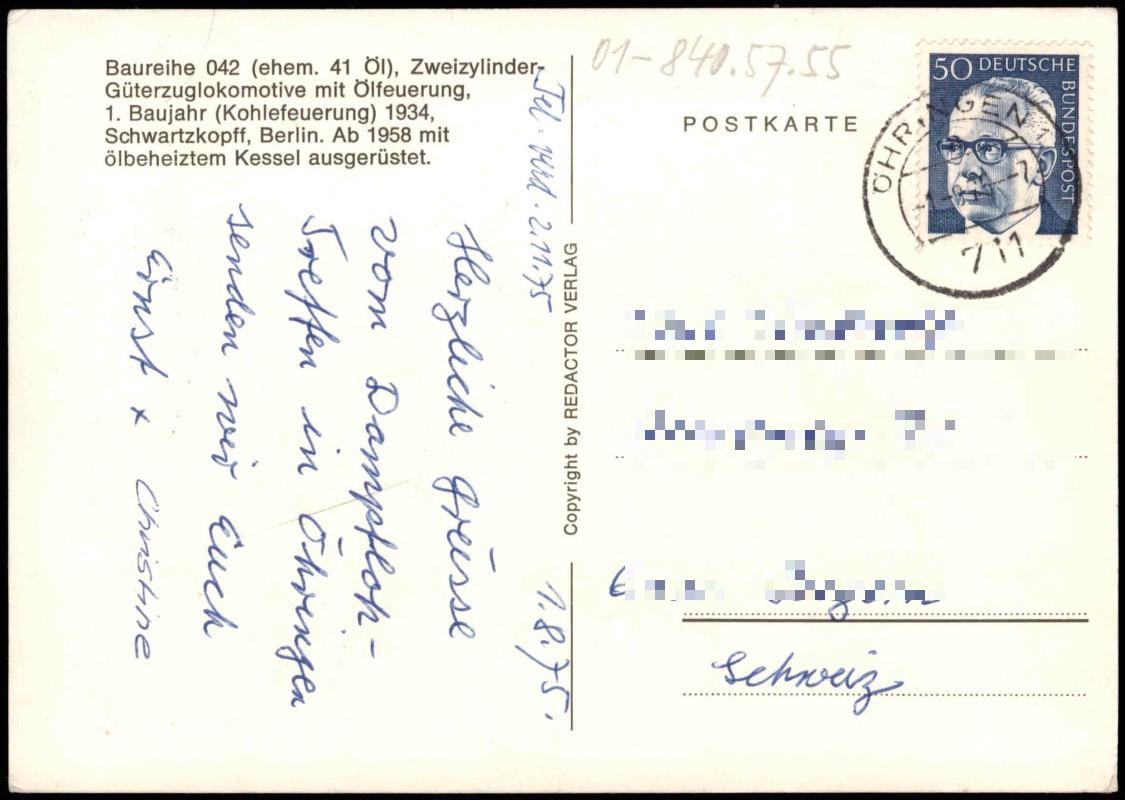 Baureihe 042 (ehem. 41 Öl), Zweizylinder-
Güterzuglokomotive mit Ölfeuerung,
1. Baujahr (Kohlefeuerung) 1934,
Schwartzkopff, Berlin. Ab 1958 mit
ölbeheiztem Kessel ausgerüstet.
Tel. verd. 2.11.75
1.8.75.
Herzliche Grüsse
vom Dampflok-
Treffen in Öhringen
senden wir Euch
Ernst + Christine
Copyright by REDACTOR VERLAG
01-840.57.55
POSTKARTE
50 DEUTSCHE
BUNDESPOST
ÖHRINGEN 1
711
Schweiz